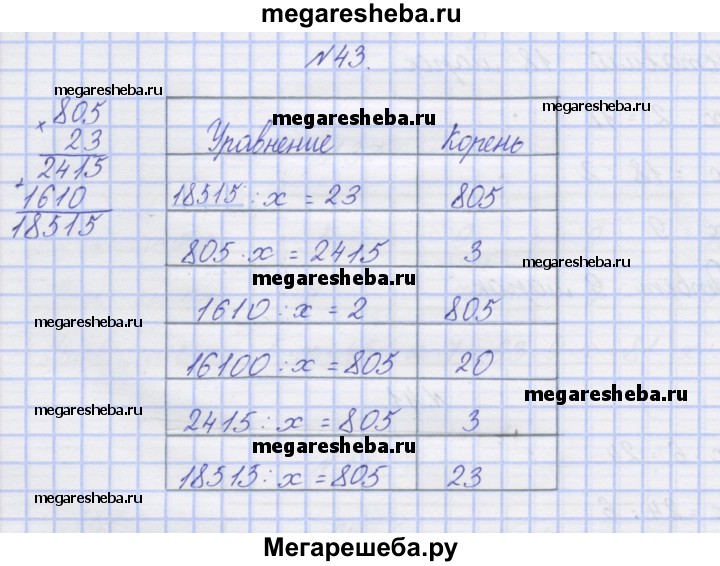 megaresheba.ru
N43.
megaresheba.ru
megaresheba.ru
megaresheba.ru
× 805
23
+ 2415
1610
18515
Уравнение Корень
18515 : x = 23 805
megaresheba.ru
805 · x = 2415 3
megaresheba.ru
megaresheba.ru
1610 : x = 2 805
megaresheba.ru
16100 : x = 805 20
megaresheba.ru
megaresheba.ru
2415 : x = 805 3
megaresheba.ru
18515 : x = 805 23
megaresheba.ru
megaresheba.ru
Мегарешеба.ру